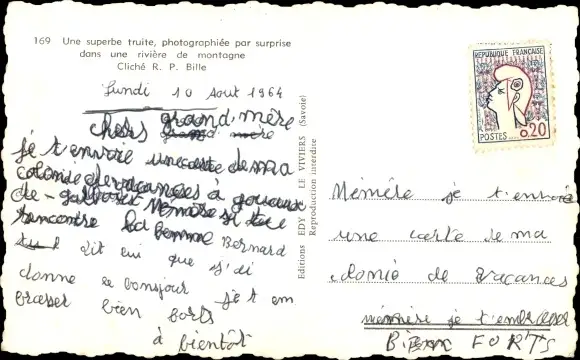 169 Une superbe truite, photographiée par surprise
dans une rivière de montagne
Cliché R. P. Bille
Lundi 10 Aout 1964
chers grand mère
grand mère
je t'envoie une carte de ma
colonie de vacances à
de - Mémère si tu
rencontre la femme Bernard
dit lui que j'ai
donne le bonsjour je t em
brasser bien forts
à bientôt
Editions EDY LE VIVIERS (Savoie)
Reproduction interdite
REPUBLIQUE FRANÇAISE
POSTES 0,20
Mémère je t'envoie
une carte de ma
colonie de vacances
mémère je t'embrasse
BiEN FORTS